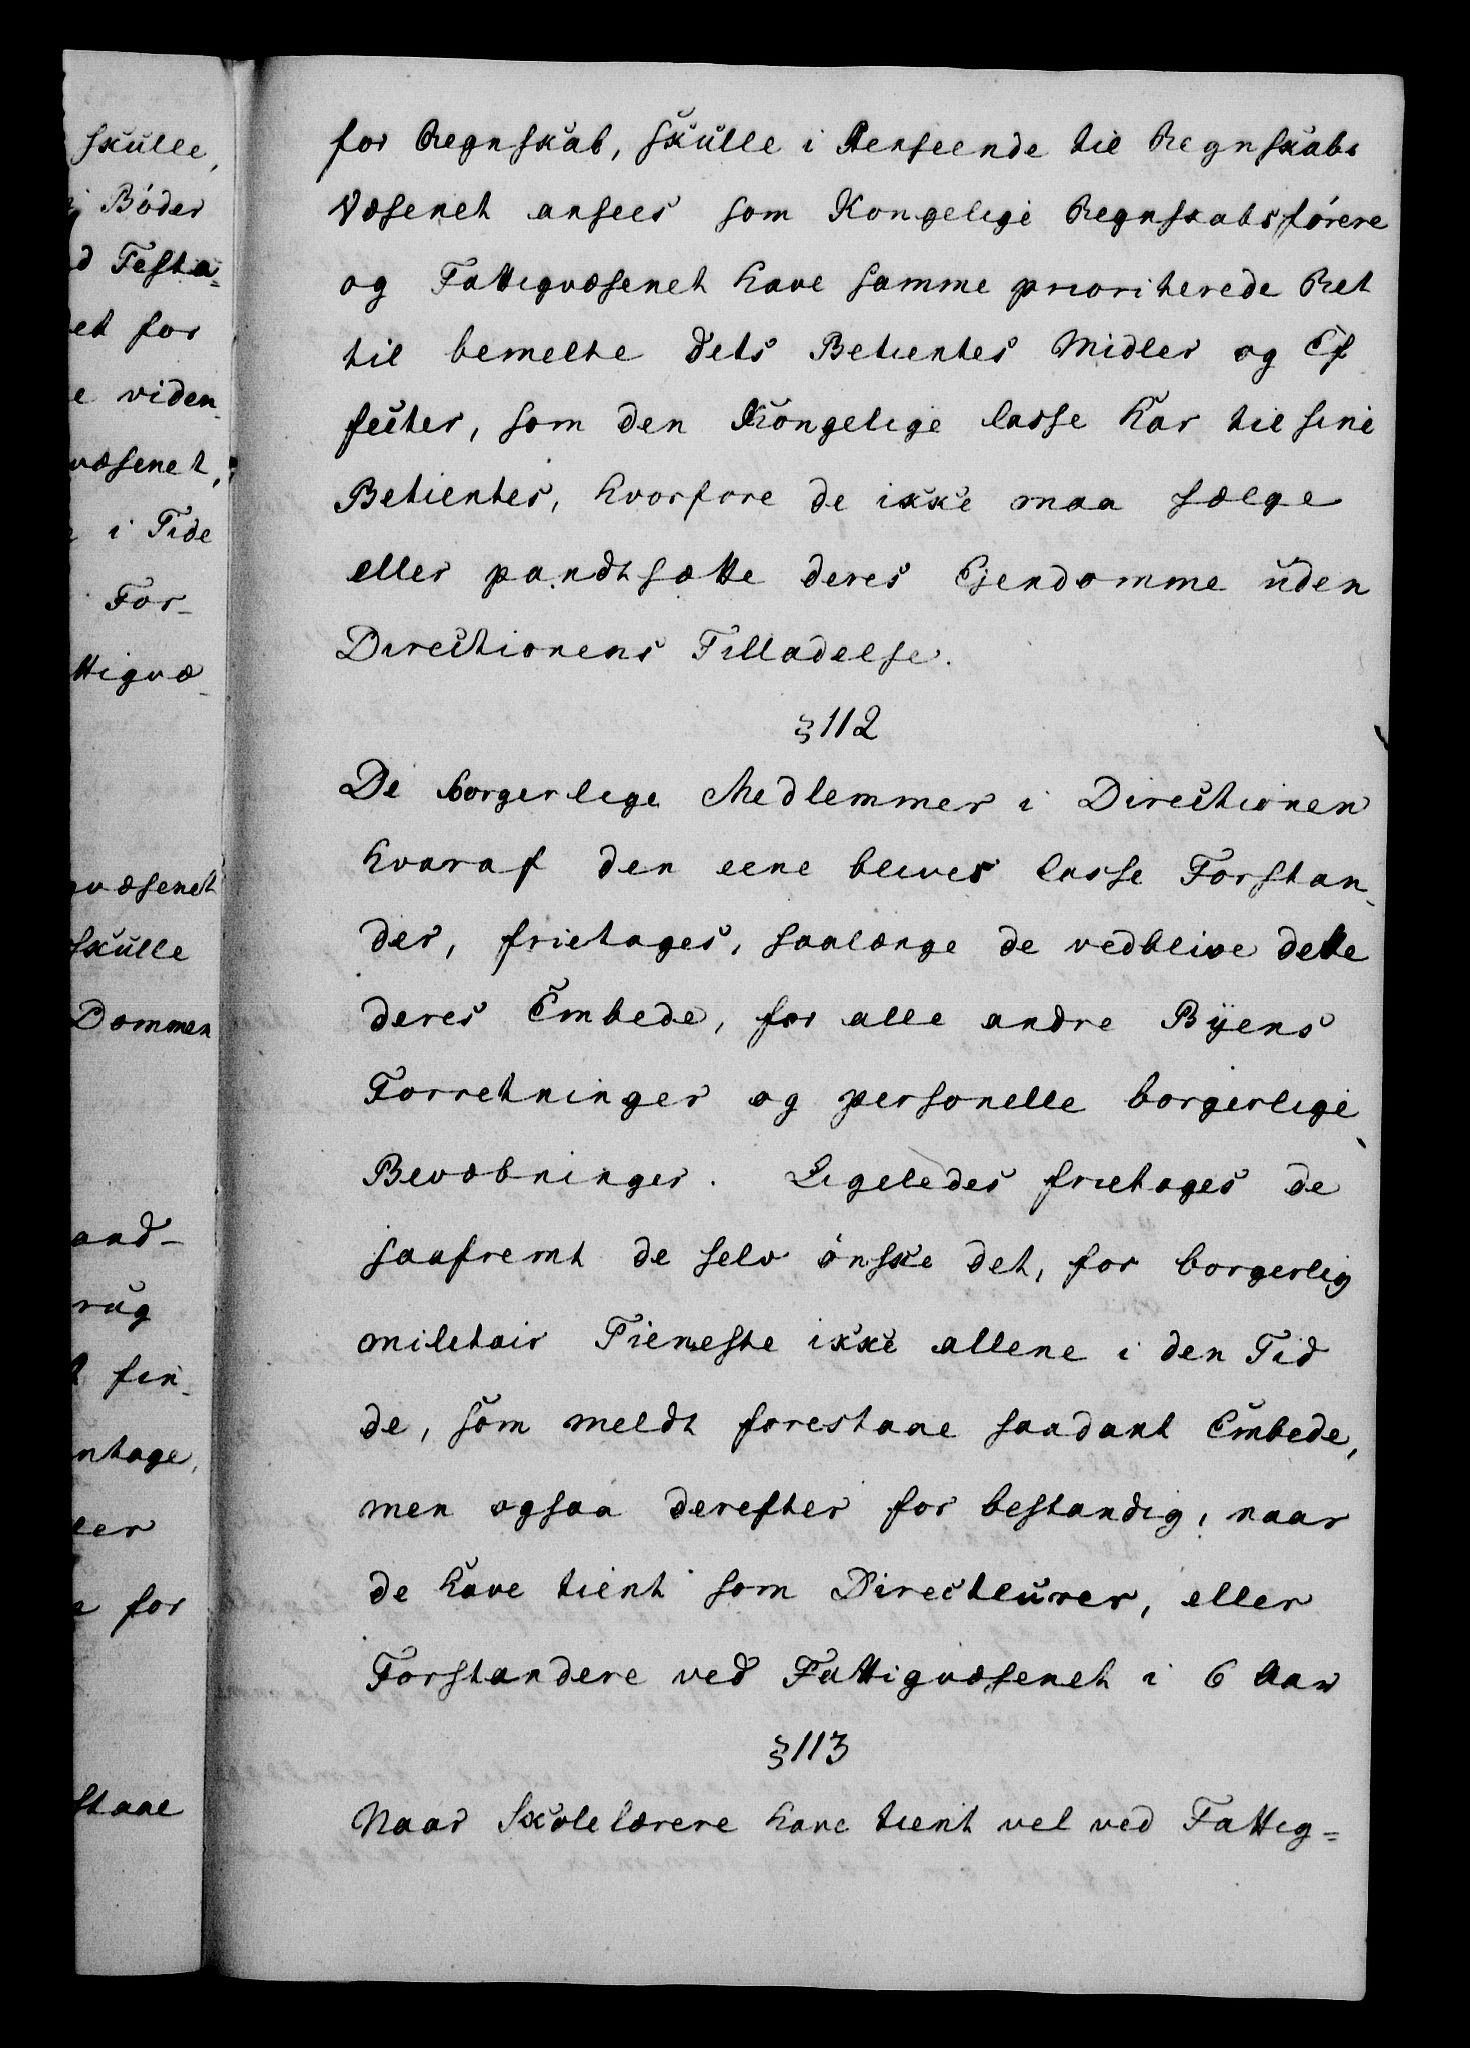 skulle,
i Bøder
d Testa=
et for
e viden
væsenet,
i Tide
For-
ttigvæ-
væsenet
skulle
Dommen
and-
rug
fin-
ntage,
ler
for
staae
for Regnskab, skulle i Henseende til Regnskabs
Væsenet ansees som Kongelige Regnskabsførere
og Fattigvæsenet have samme prioriterede Ret
til bemelte dets Betientes Midler og Ef
fecter, som den Kongelige Casse har til sine
Betientes, hvorfore de ikke maa sælge
eller pandtsætte deres Ejendomme uden
Directionens Tilladelse.
§ 112
De borgerlige Medlemmer i Directionen
hvoraf den eene bliver Casse Forstan-
der, frietages, saalænge de vedblive dette
deres Embede, for alle andre Byens
Forretninger og personelle borgerlige
Bevæbninger. Ligeledes frietages de
saafremt de selv ønske det, for borgerlig
militair Tieneste ikke allene i den Tid
de, som meldt forestaae saadant Embede,
men ogsaa derefter for bestandig, naar
de have tient som Directeurer, eller
Forstandere ved Fattigvæsenet i 6 Aar
§ 113
Naar Skolelærere have tient vel ved Fattig=